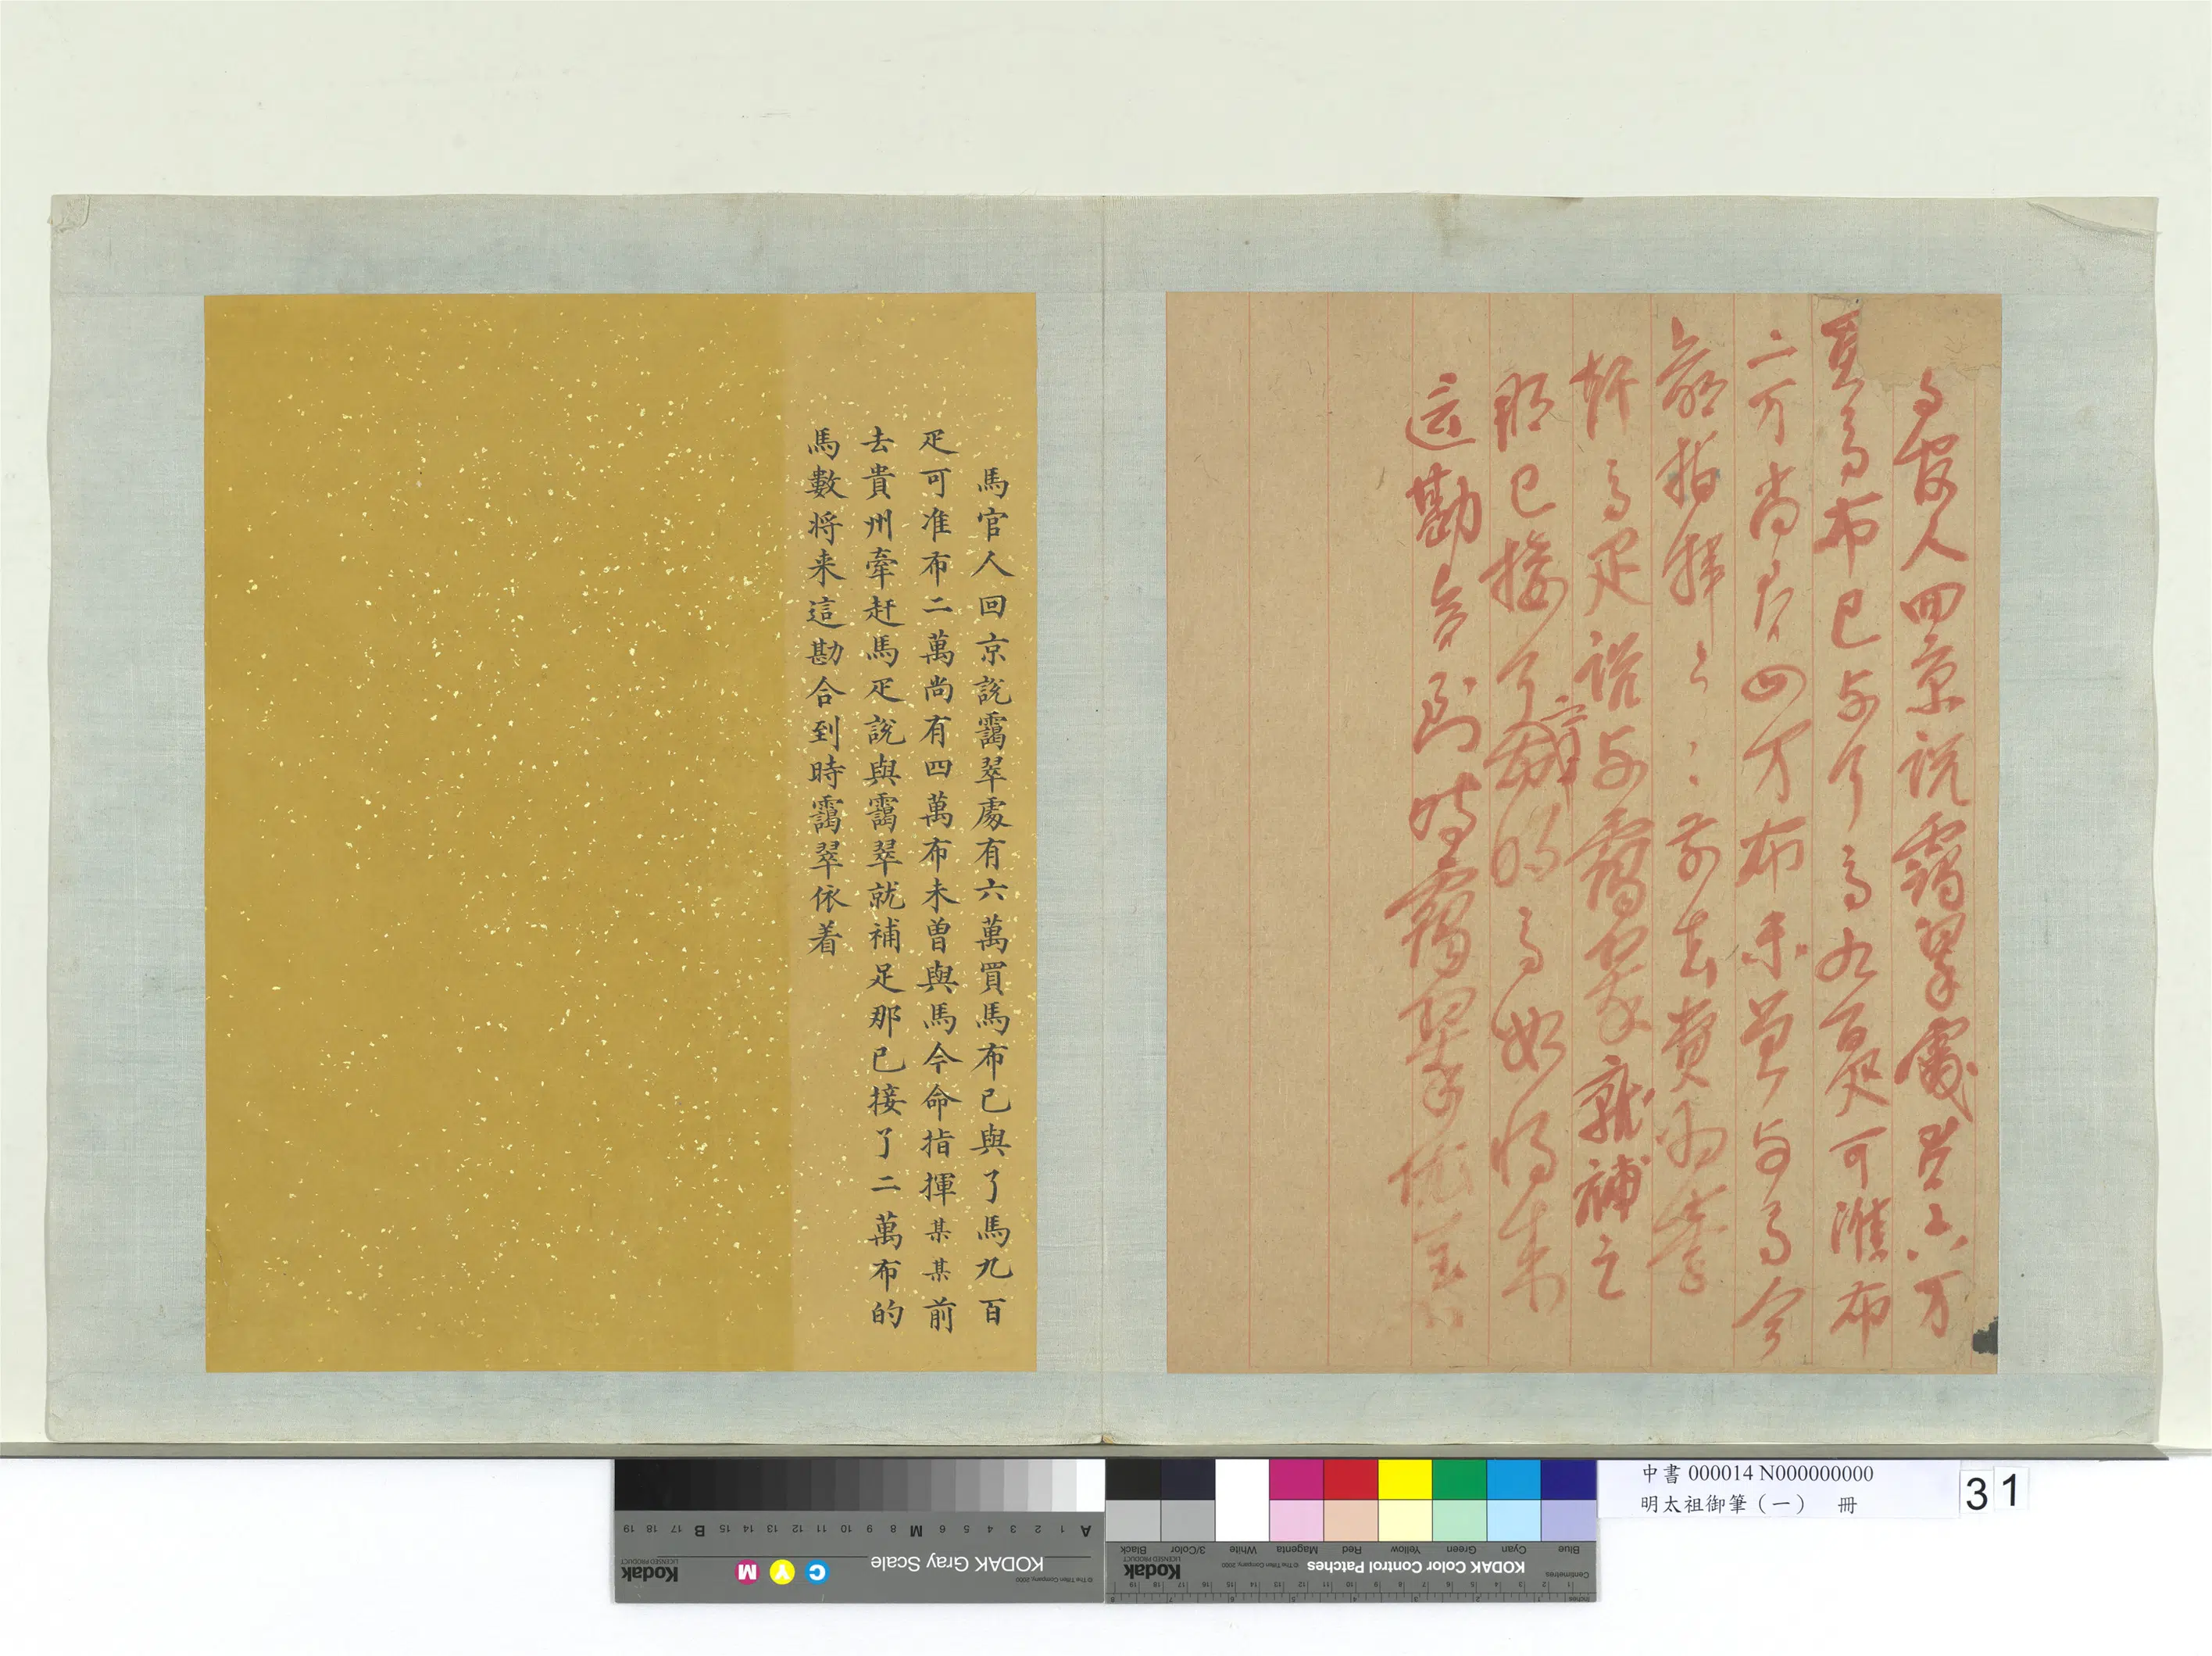 馬官人回京說靄翠處有六万
買馬布已与了馬九百疋可准布
二万尚有四万布未曾与馬今
命指揮〻〻〻前去貴州牽
赶馬疋說与靄翠就補足
那已接了二万布的馬数将来
這勘合到時靄翠依着
馬官人回京說靄翠處有六萬買馬布已與了馬九百
疋可准布二萬尚有四萬布未曾與馬今命指揮某某前
去貴州牽赶馬疋說與靄翠就補足那已接了二萬布的
馬數将来這勘合到時靄翠依着
中書 000014 N000000000
明太祖御筆（一） 冊
31
KODAK Gray Scale
Kodak
LICENSED PRODUCT
© The Tiffen Company, 2000
C Y M
A 1 2 3 4 5 6 M 8 9 10 11 12 13 14 15 B 17 18 19
KODAK Color Control Patches
© The Tiffen Company, 2000
Kodak
LICENSED PRODUCT
Blue Cyan Green Yellow Red Magenta White 3/Color Black
Centimetres
Inches